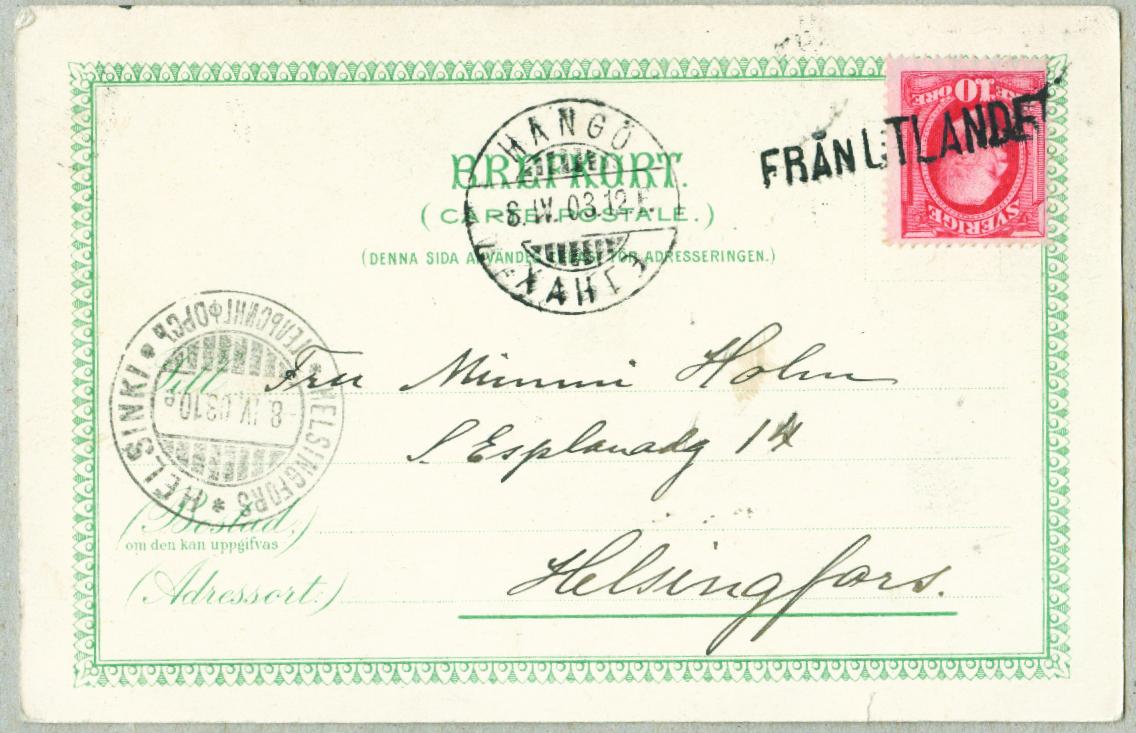 10 ÖRE
SVERIGE
FRÅN UTLANDET
BREFKORT.
(CARTE POSTALE.)
(DENNA SIDA ANVÄNDES ENDAST FÖR ADRESSERINGEN.)
HANGÖ
8.IV.03.12
Till Fru Mimmi Holm
S. Esplanadg 14
HELSINKI * HELSINGFORS * ГЕЛЬСИНГФОРСЪ
8.IV.03.10
(Bostad.)
om den kan uppgifvas
Helsingfors.
(Adressort:)